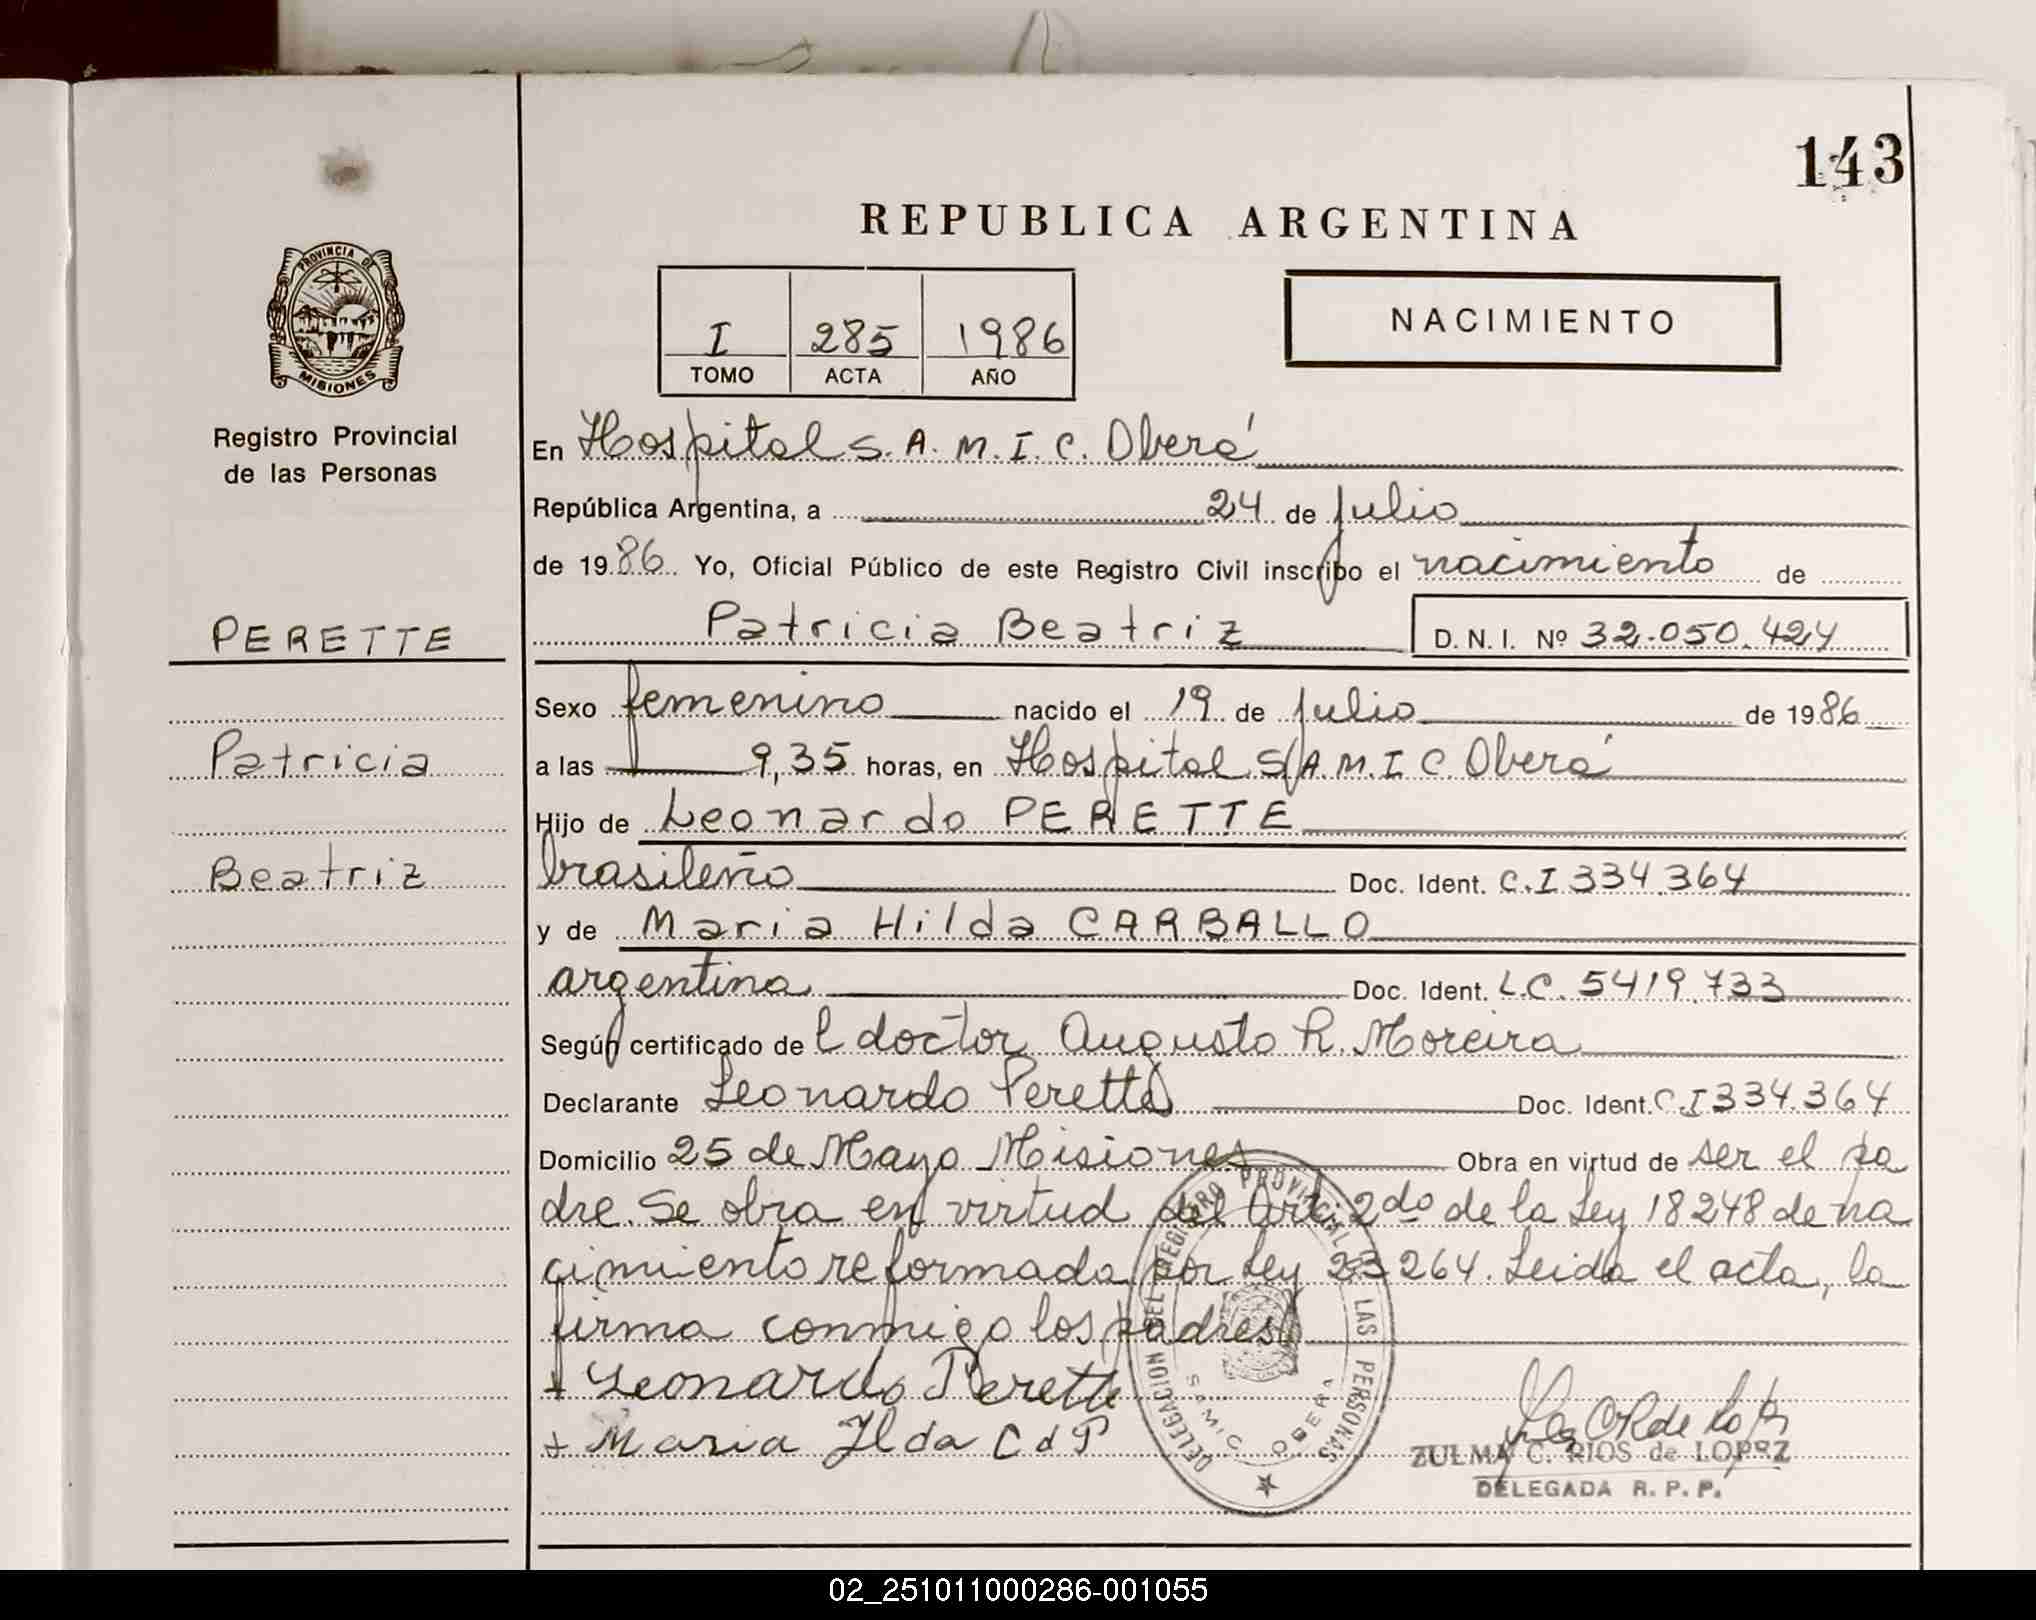 143
REPUBLICA ARGENTINA
PROVINCIA DE
MISIONES
Registro Provincial
de las Personas
I 285 1986
TOMO ACTA AÑO
NACIMIENTO
En Hospital S.A.M.I.C. Oberá
República Argentina, a 24 de julio
de 1986 Yo, Oficial Público de este Registro Civil inscribo el nacimiento de
PERETTE
Patricia Beatriz D.N.I. Nº 32.050.424
Sexo femenino nacido el 19 de julio de 1986
Patricia
a las 9,35 horas, en Hospital S.A.M.I.C Oberá
Hijo de Leonardo PERETTE
Beatriz
brasileño Doc. Ident. C.I 334.364
y de Maria Hilda CARBALLO
argentina Doc. Ident. L.C. 5419.733
Según certificado de l doctor Augusto R. Moreira
Declarante Leonardo Perette Doc. Ident. C.I 334.364
Domicilio 25 de Mayo Misiones Obra en virtud de ser el pa
dre. Se obra en virtud del Art. 2do de la Ley 18248 de na
cimiento reformada por Ley 23264. Leida el acta, la
firma conmigo los padres
+ Leonardo Perette
+ Maria Ilda C d P
DELEGACION DEL REGISTRO PROVINCIAL DE LAS PERSONAS
SAMIC OBERA
ZULMA C. RIOS de LOPEZ
DELEGADA R.P.P.
02_251011000286-001055